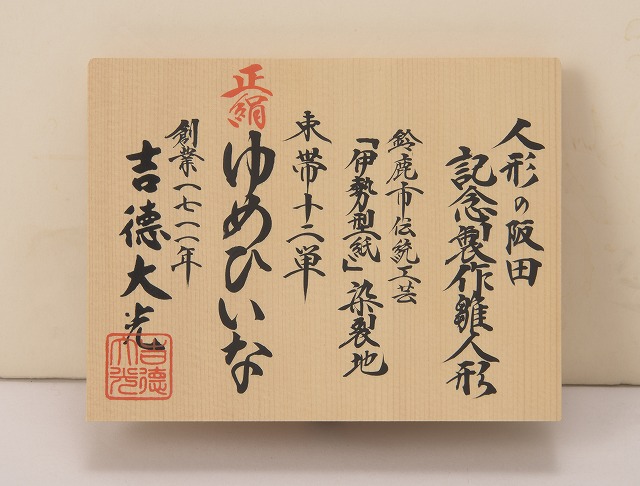 人形の阪田
記念製作雛人形
鈴鹿市伝統工芸
「伊勢型紙」染裂地
束帯十二単
正絹
ゆめひいな
創業一七一一年
吉德大光
吉德大光